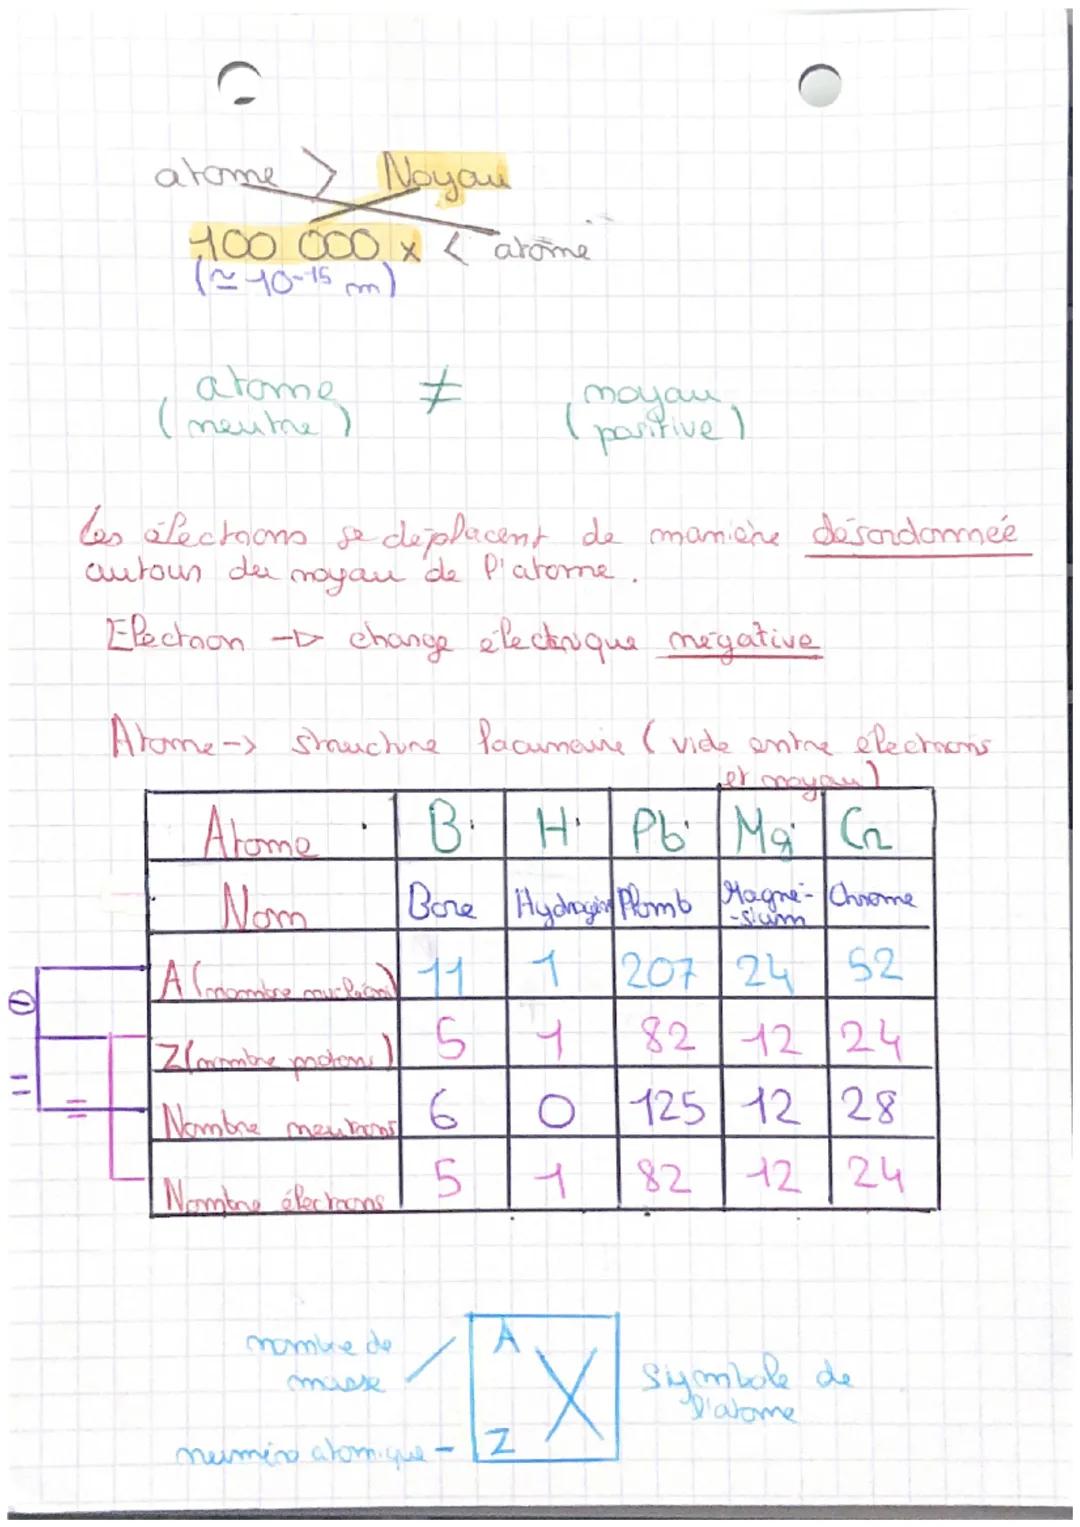 atome > Noyau
100 000 x < atome
(≃ 10-15 m)
atome ≠ noyau
(neutre) (positive)
Les électrons se déplacent de manière désordonnée
autour du noyau de l'atome.
Electron -> charge électrique négative
Atome -> structure lacunaire (vide entre électrons
et noyau)
Atome B H Pb Mg Cr
Nom Bore Hydrogèn Plomb Magné- Chrome
-sium
A (nombre nucléons) 11 1 207 24 52
Z (nombre protons) 5 1 82 12 24
Nombre neutrons 6 0 125 12 28
Nombre électrons 5 1 82 12 24
⊖
=
=
nombre de
masse
A
X
Z
symbole de
l'atome
numéro atomique -